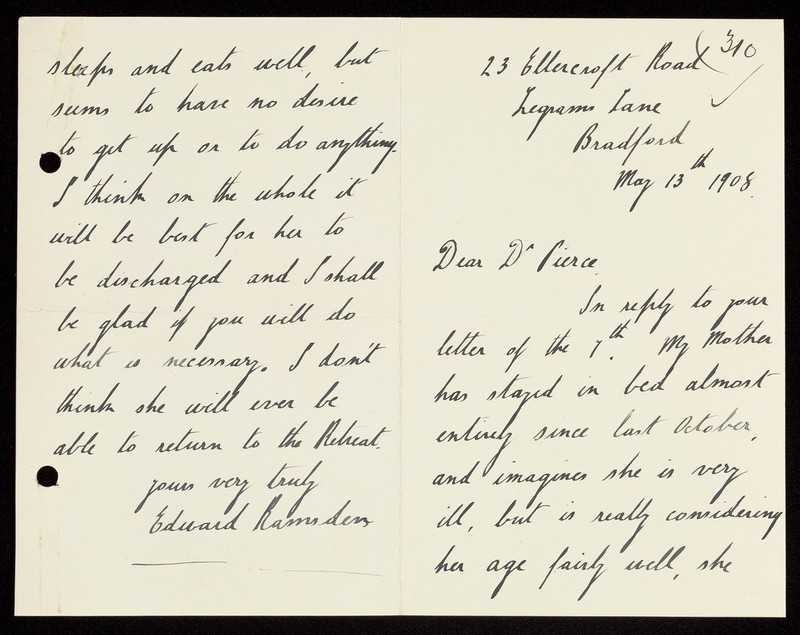 310
23 Ellercroft Road
Legrams Lane
Bradford
May 13th 1908.
Dear Dr Pierce
In reply to your
letter of the 7th. My Mother
has stayed in bed almost
entirely since last October,
and imagines she is very
ill, but is really considering
her age fairly well, she
sleeps and eats well, but
seems to have no desire
to get up or to do anything.
I think on the whole it
will be best for her to
be discharged and I shall
be glad if you will do
what is necessary. I don't
think she will ever be
able to return to the Retreat.
yours very truly
Edward Ramsden